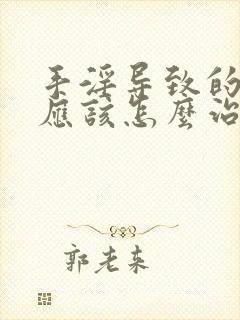 手淫导致的
應該怎麼治
郭老来